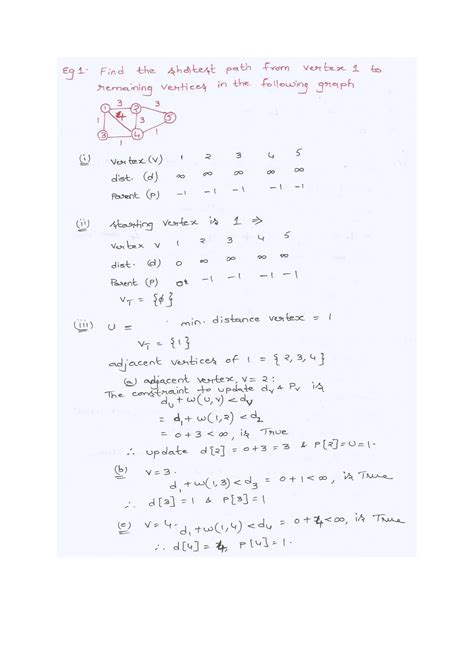 Eg 1. Find the shortest path from vertex 1 to
remaining vertices in the following graph
3 3
1 2
1 4 3 5
3 4 1
1
(i) vertex (v) 1 2 3 4 5
dist. (d) ∞ ∞ ∞ ∞ ∞
Parent (p) -1 -1 -1 -1 -1
(ii) starting vertex is 1 ⇒
vertex v 1 2 3 4 5
dist. (d) 0 ∞ ∞ ∞ ∞
Parent (p) -1 -1 -1 -1
V_T = {∅}
(iii) U = min. distance vertex = 1
V_T = {1}
adjacent vertices of 1 = {2, 3, 4}
(a) adjacent vertex, v = 2:
The constraint to update d_v & P_v is
d_u + w(u, v) < d_v
= d_1 + w(1, 2) < d_2
= 0 + 3 < ∞, is True
∴ update d[2] = 0+3 = 3 & P[2]=U=1.
(b) V = 3.
d_1 + w(1, 3) < d_3 = 0+1 < ∞, is True
∴ d[3] = 1 & P[3] = 1
(c) V = 4. d_1 + w(1, 4) < d_4 = 0 + 4 < ∞, is True
∴ d[4] = 4, P[4] = 1.